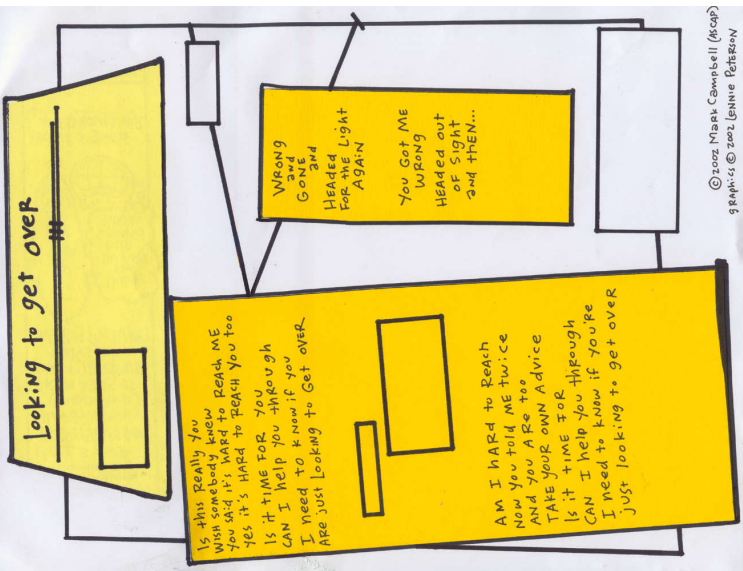 Looking to get over
Is this Really You
Wish somebody knew
You said it's hard to Reach me
Yes it's hard to reach you too
Is it time for you
Can I help you through
I need to know if you
Are just Looking to Get over
Am I hard to Reach
Now you told me twice
And you are too
Take your own advice
Is it time for
Can I help you through
I need to know if you're
just looking to get over
Wrong
and
Gone
and
Headed
For the Light
Again
You Got Me
Wrong
Headed out
of Sight
and then...
© 2002 Mark Campbell (ASCAP)
graphics © 2002 Lennie Peterson